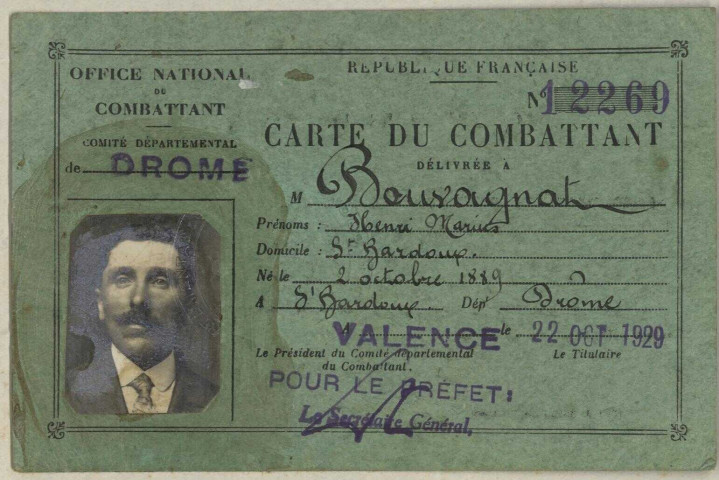 OFFICE NATIONAL
DU
COMBATTANT
COMITÉ DÉPARTEMENTAL
de DROME
RÉPUBLIQUE FRANÇAISE
N° 12269
CARTE DU COMBATTANT
DÉLIVRÉE A
M Bouvagnat
Prénoms : Henri Marius
Domicile : St Bardoux.
Né le 2 octobre 1889
A St Bardoux. Dépt Drôme
A VALENCE le 22 OCT 1929
Le Président du Comité départemental
du Combattant.
Le Titulaire
POUR LE PRÉFET:
Le Secrétaire Général,